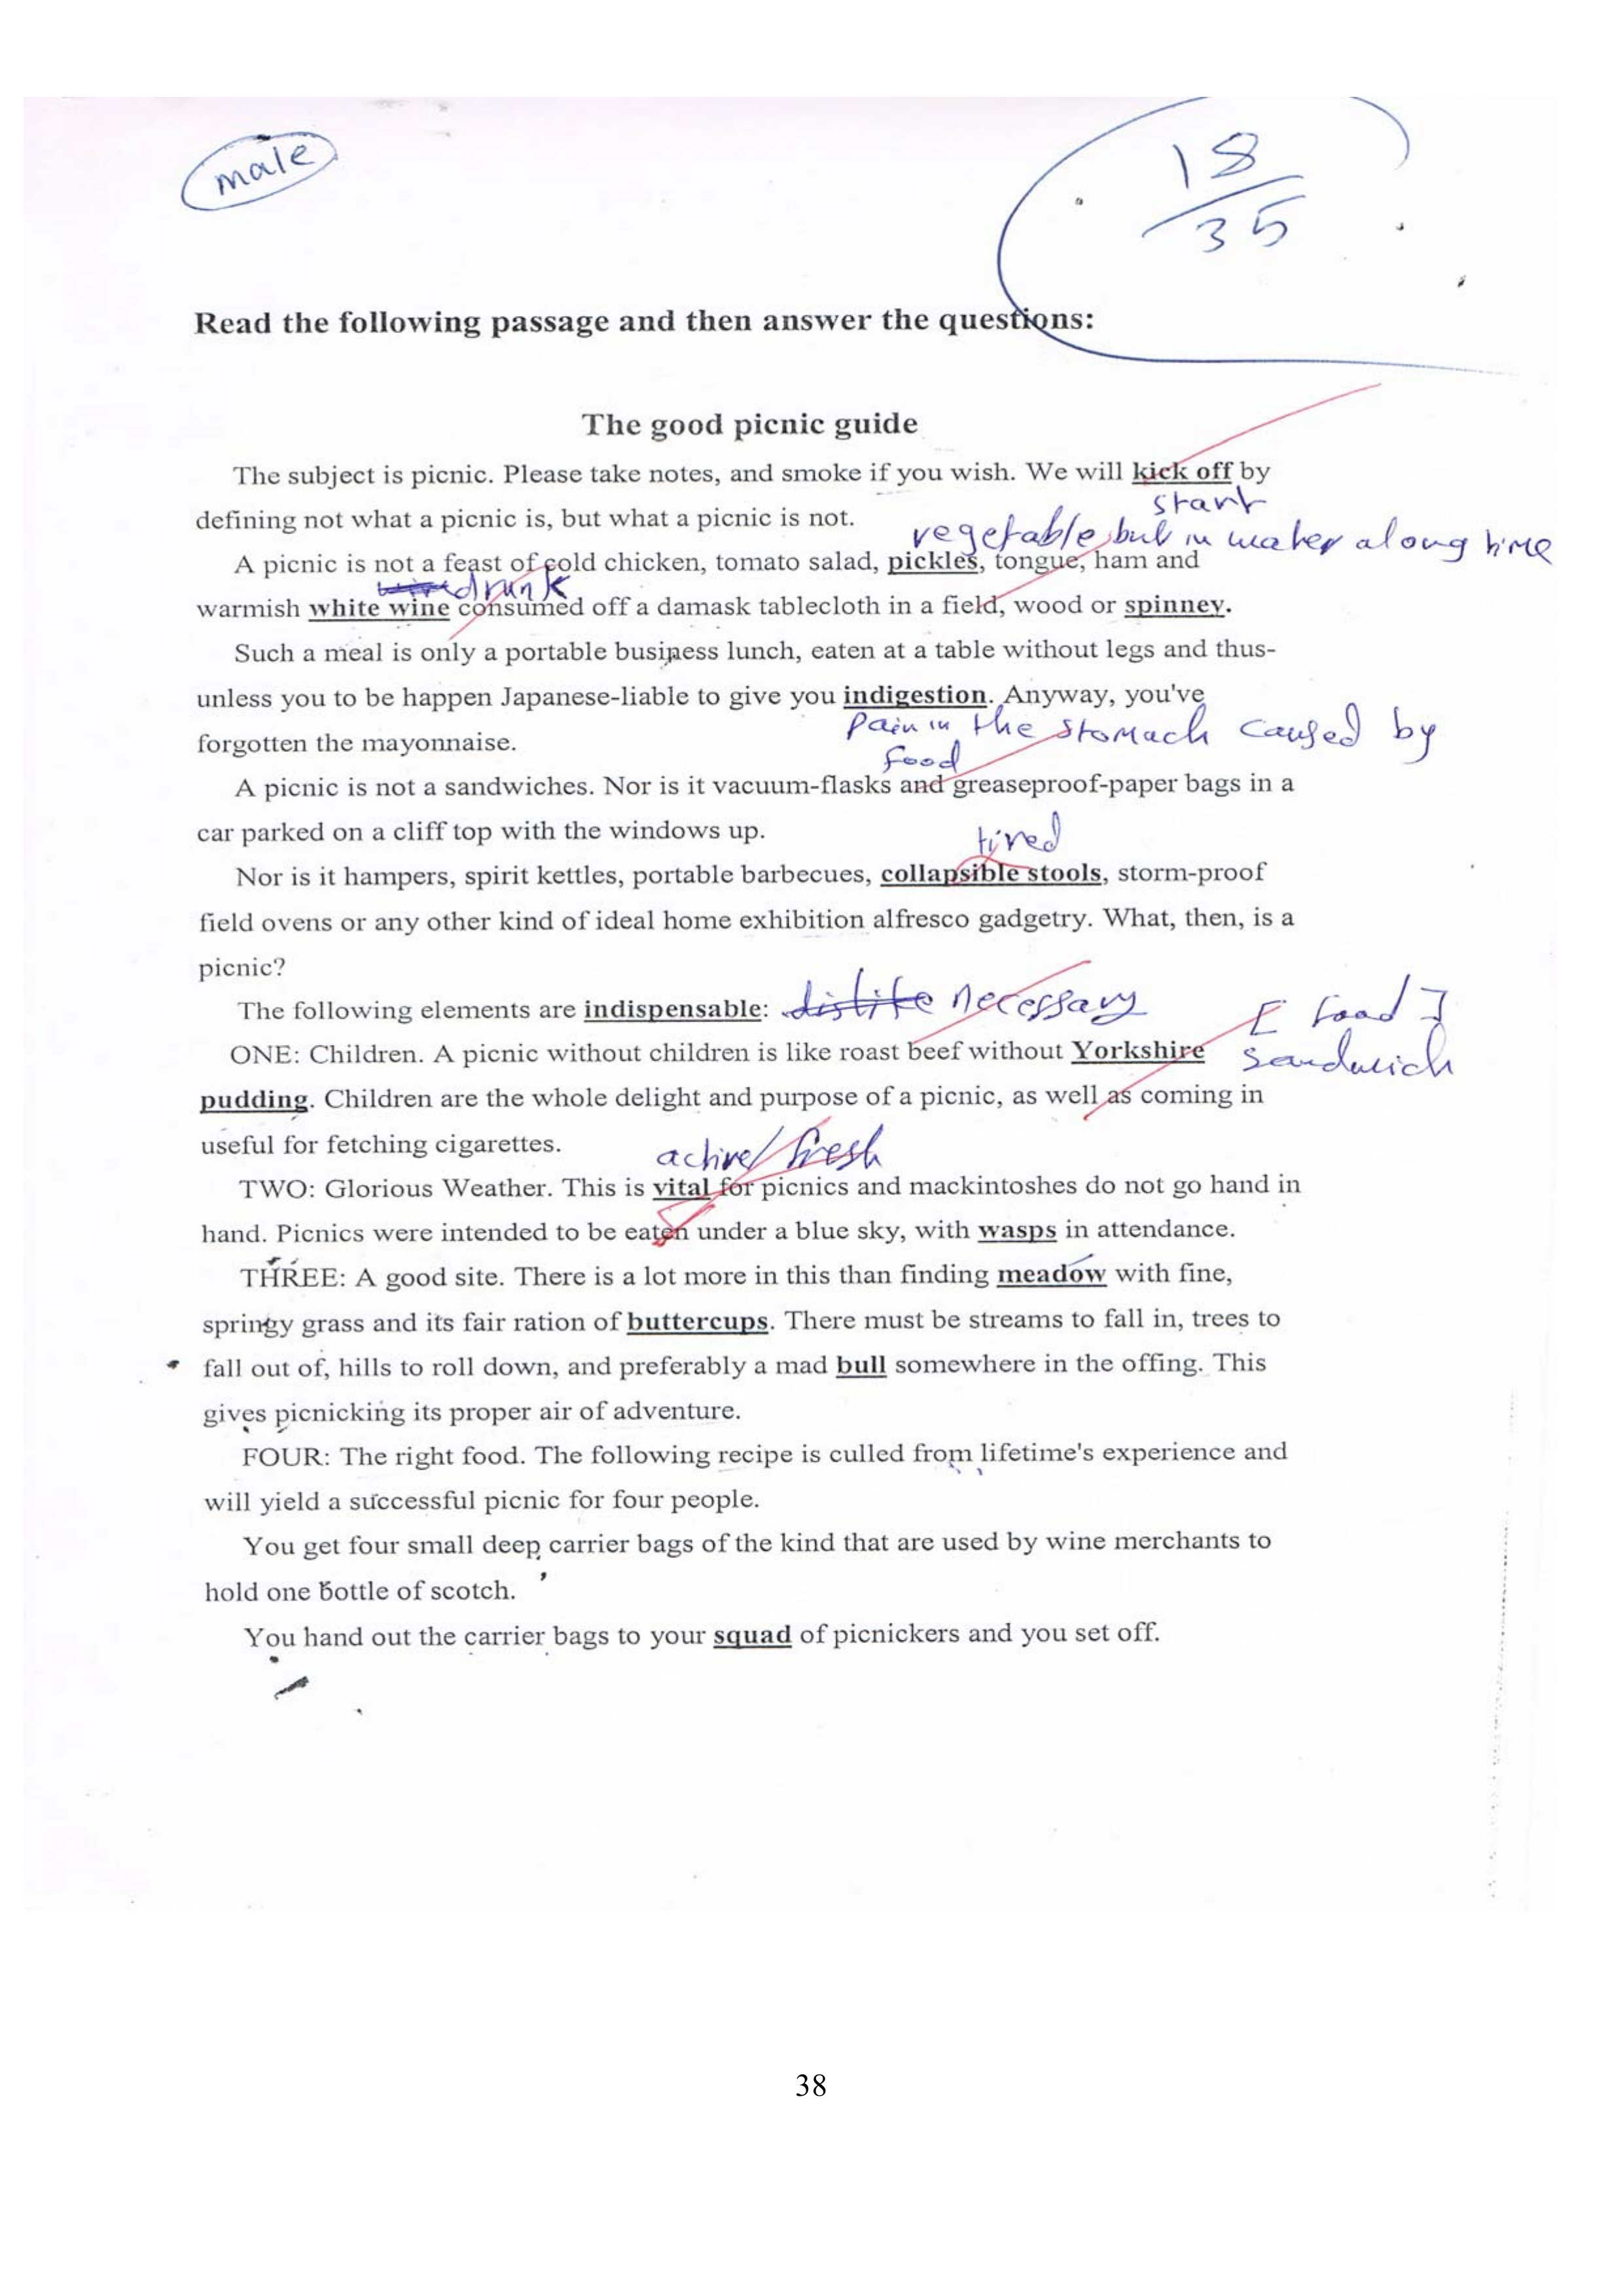 male
18
35
Read the following passage and then answer the questions:
The good picnic guide
The subject is picnic. Please take notes, and smoke if you wish. We will kick off by
start
defining not what a picnic is, but what a picnic is not.
vegetable but in water along time
A picnic is not a feast of cold chicken, tomato salad, pickles, tongue, ham and
drunk
warmish white wine consumed off a damask tablecloth in a field, wood or spinney.
Such a meal is only a portable business lunch, eaten at a table without legs and thus-
unless you to be happen Japanese-liable to give you indigestion. Anyway, you've
Pain in the stomach caused by
forgotten the mayonnaise.
food
A picnic is not a sandwiches. Nor is it vacuum-flasks and greaseproof-paper bags in a
car parked on a cliff top with the windows up.
tired
Nor is it hampers, spirit kettles, portable barbecues, collapsible stools, storm-proof
field ovens or any other kind of ideal home exhibition alfresco gadgetry. What, then, is a
picnic?
The following elements are indispensable: dislike necessary
[ food ]
ONE: Children. A picnic without children is like roast beef without Yorkshire
sandwich
pudding. Children are the whole delight and purpose of a picnic, as well as coming in
useful for fetching cigarettes.
active/ fresh
TWO: Glorious Weather. This is vital for picnics and mackintoshes do not go hand in
hand. Picnics were intended to be eaten under a blue sky, with wasps in attendance.
THREE: A good site. There is a lot more in this than finding meadow with fine,
springy grass and its fair ration of buttercups. There must be streams to fall in, trees to
fall out of, hills to roll down, and preferably a mad bull somewhere in the offing. This
gives picnicking its proper air of adventure.
FOUR: The right food. The following recipe is culled from lifetime's experience and
will yield a successful picnic for four people.
You get four small deep carrier bags of the kind that are used by wine merchants to
hold one bottle of scotch.
You hand out the carrier bags to your squad of picnickers and you set off.
38